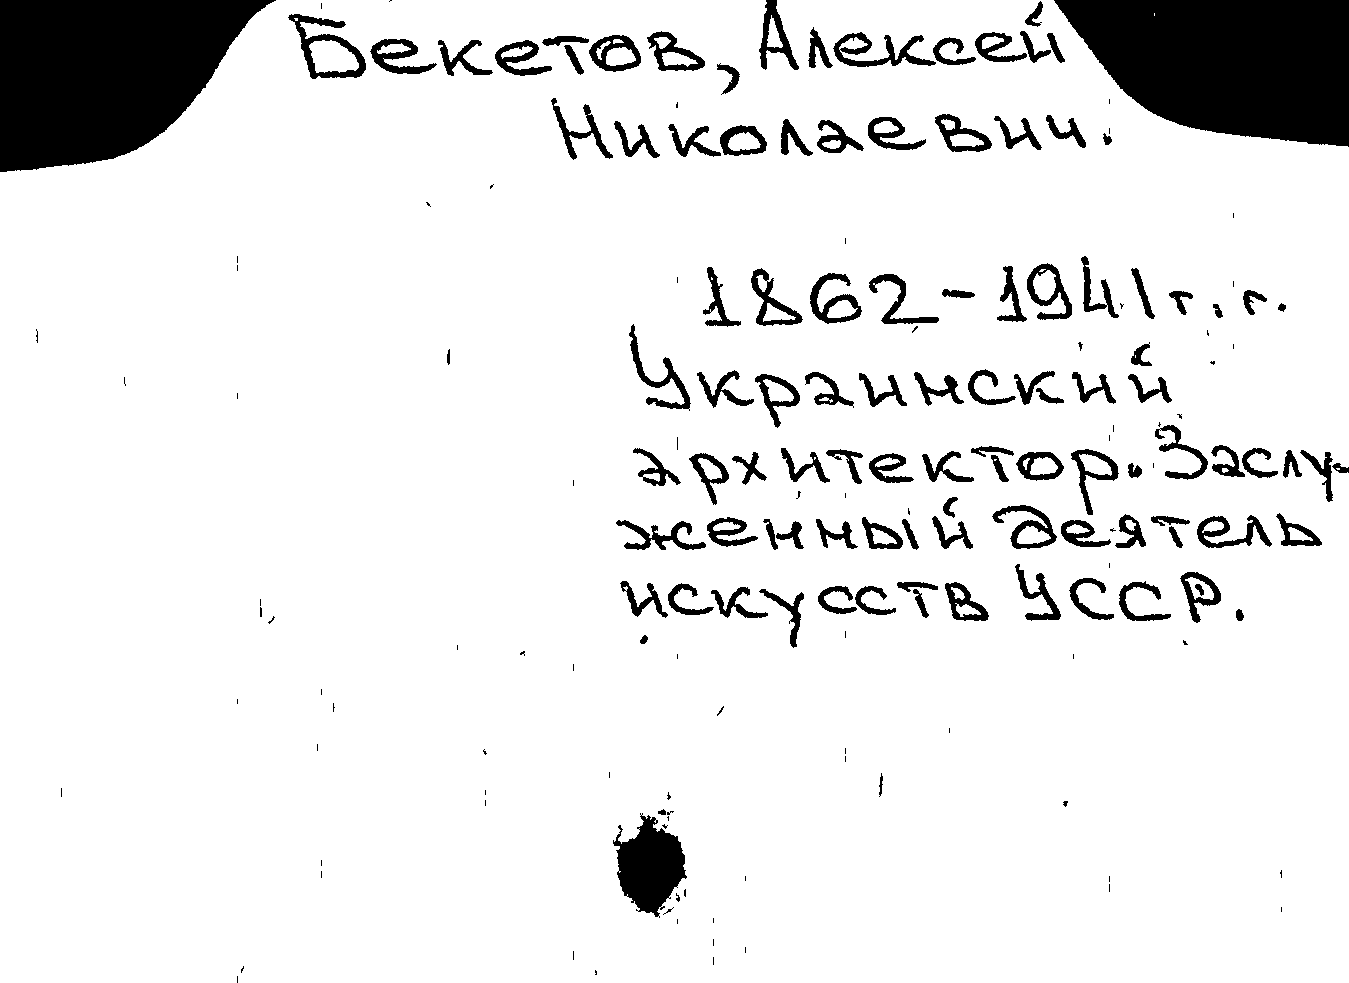 Бекетов, Алексей
Николаевич.
1862-1941 г. г.
Украинский
архитектор. Заслу-
женный деятель
искусств УССР.